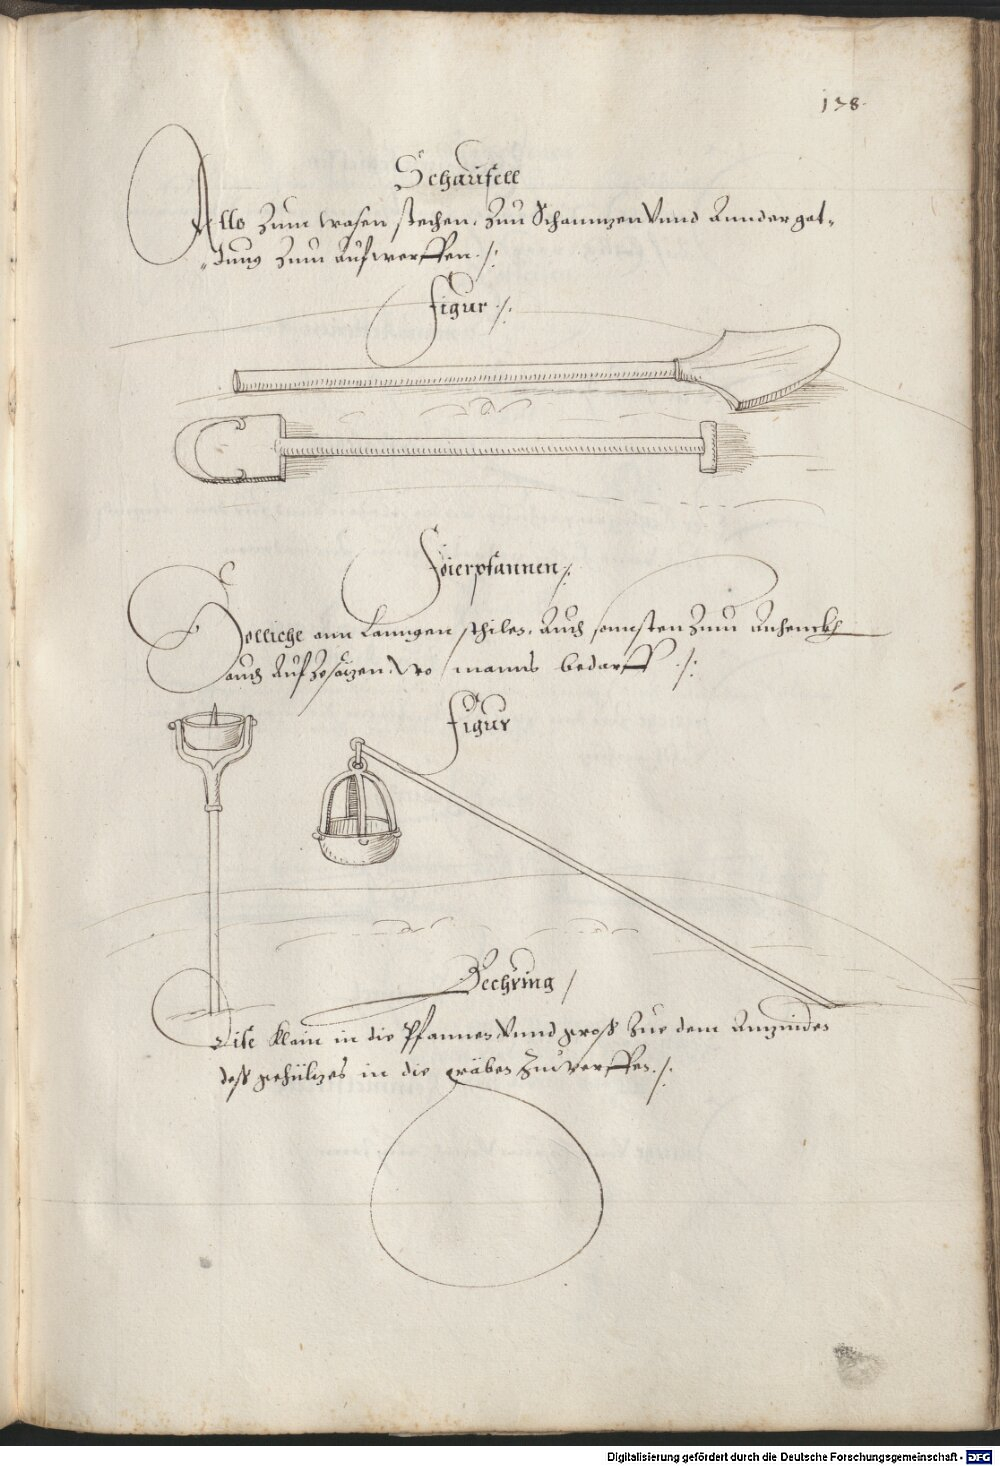 138.
Schaufell
Allso Zum wasen stechen, Zuu Schanntzen Vnnd Annder gat„
„tung Zum Aufwerffen ./.
figur ./.
föierpfannen ./.
Solliche ann Lanngen stihlen, Auch sonnsten Zum Anhenckh
auch Auf Zesätzen, Wo manns bedarff ./.
figur
Bechring /
Dise klain in die Pfannen Vnnd gross Zue dem Anzinden
dess gehültzes in die gräben Zuwerffen ./.
Digitalisierung gefördert durch die Deutsche Forschungsgemeinschaft - DFG